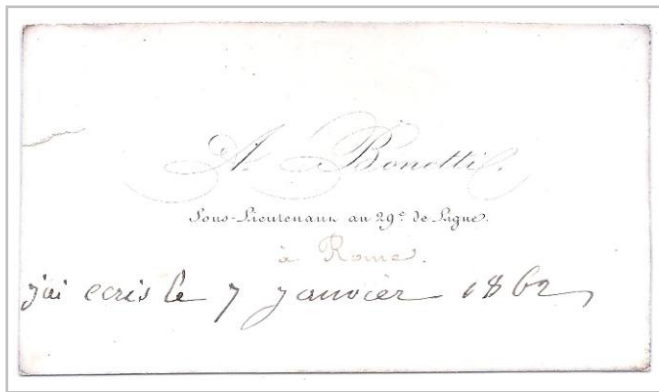 A. Bonetti.
Sous-Lieutenant au 29e de Ligne.
à Rome.
j'ai ecris le 7 janvier 1862